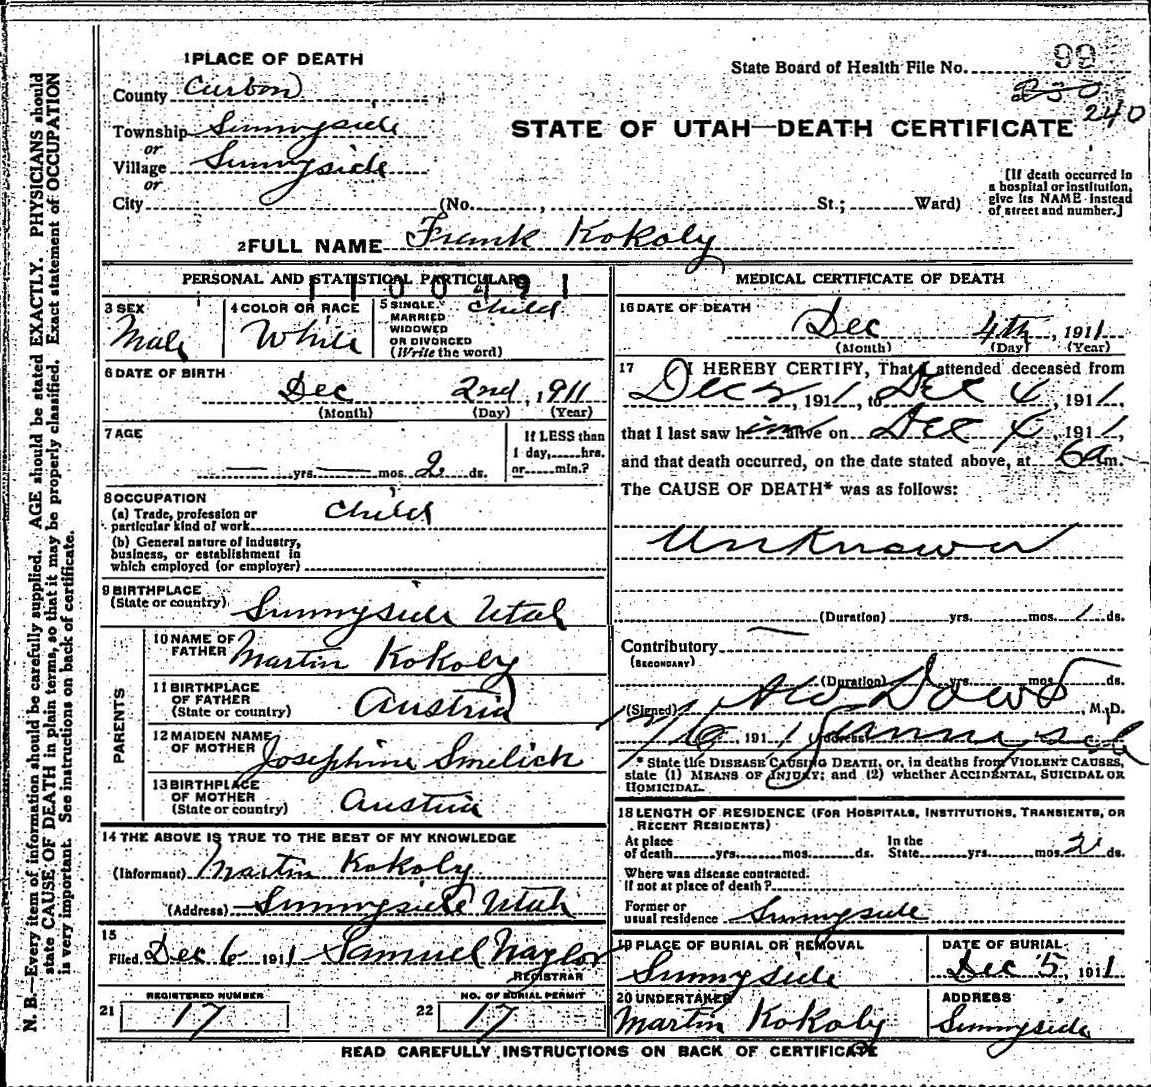 1 PLACE OF DEATH
State Board of Health File No. 99
County Carbon
230
240
Township Sunnyside
STATE OF UTAH—DEATH CERTIFICATE
or
Village Sunnyside
or
[If death occurred in a hospital or institution, give its NAME instead of street and number.]
City (No. , St.; Ward)
2 FULL NAME Frank Kokoly
PERSONAL AND STATISTICAL PARTICULARS
1100491
3 SEX Male
4 COLOR OR RACE White
5 SINGLE, MARRIED WIDOWED OR DIVORCED (Write the word) Child
6 DATE OF BIRTH
Dec 2nd, 1911
(Month) (Day) (Year)
7 AGE
— yrs. — mos. 2 ds.
If LESS than 1 day, hrs. or min.?
8 OCCUPATION
(a) Trade, profession or particular kind of work child
(b) General nature of industry, business, or establishment in which employed (or employer)
9 BIRTHPLACE
(State or country) Sunnyside Utah
PARENTS
10 NAME OF FATHER Martin Kokoly
11 BIRTHPLACE OF FATHER (State or country) Austria
12 MAIDEN NAME OF MOTHER Josephine Smilich
13 BIRTHPLACE OF MOTHER (State or country) Austria
14 THE ABOVE IS TRUE TO THE BEST OF MY KNOWLEDGE
(Informant) Martin Kokoly
(Address) Sunnyside Utah
15
Filed Dec 6 1911 Samuel Naylor
REGISTRAR
21 REGISTERED NUMBER 17
22 NO. OF BURIAL PERMIT 17
MEDICAL CERTIFICATE OF DEATH
16 DATE OF DEATH
Dec 4th, 1911
(Month) (Day) (Year)
17 I HEREBY CERTIFY, That I attended deceased from
Dec 2, 1911, to Dec 4, 1911,
that I last saw him alive on Dec 4, 1911,
and that death occurred, on the date stated above, at 6 a m.
The CAUSE OF DEATH* was as follows:
Unknown
(Duration) yrs. mos. 1 ds.
Contributory —
(SECONDARY)
(Duration) yrs. mos. ds.
(Signed) Dowd M.D.
12/6, 1911 (Address) Sunnyside
* State the DISEASE CAUSING DEATH, or, in deaths from VIOLENT CAUSES,
state (1) MEANS OF INJURY; and (2) whether ACCIDENTAL, SUICIDAL OR
HOMICIDAL.
18 LENGTH OF RESIDENCE (FOR HOSPITALS, INSTITUTIONS, TRANSIENTS, OR
RECENT RESIDENTS)
At place of death yrs. mos. ds. In the State yrs. mos. 2 ds.
Where was disease contracted.
If not at place of death?
Former or usual residence Sunnyside
19 PLACE OF BURIAL OR REMOVAL Sunnyside
DATE OF BURIAL Dec 5, 1911
20 UNDERTAKER Martin Kokoly
ADDRESS Sunnyside
READ CAREFULLY INSTRUCTIONS ON BACK OF CERTIFICATE
N. B.—Every item of information should be carefully supplied. AGE should be stated EXACTLY. PHYSICIANS should
state CAUSE OF DEATH in plain terms, so that it may be properly classified. Exact statement of OCCUPATION
is very important. See instructions on back of certificate.